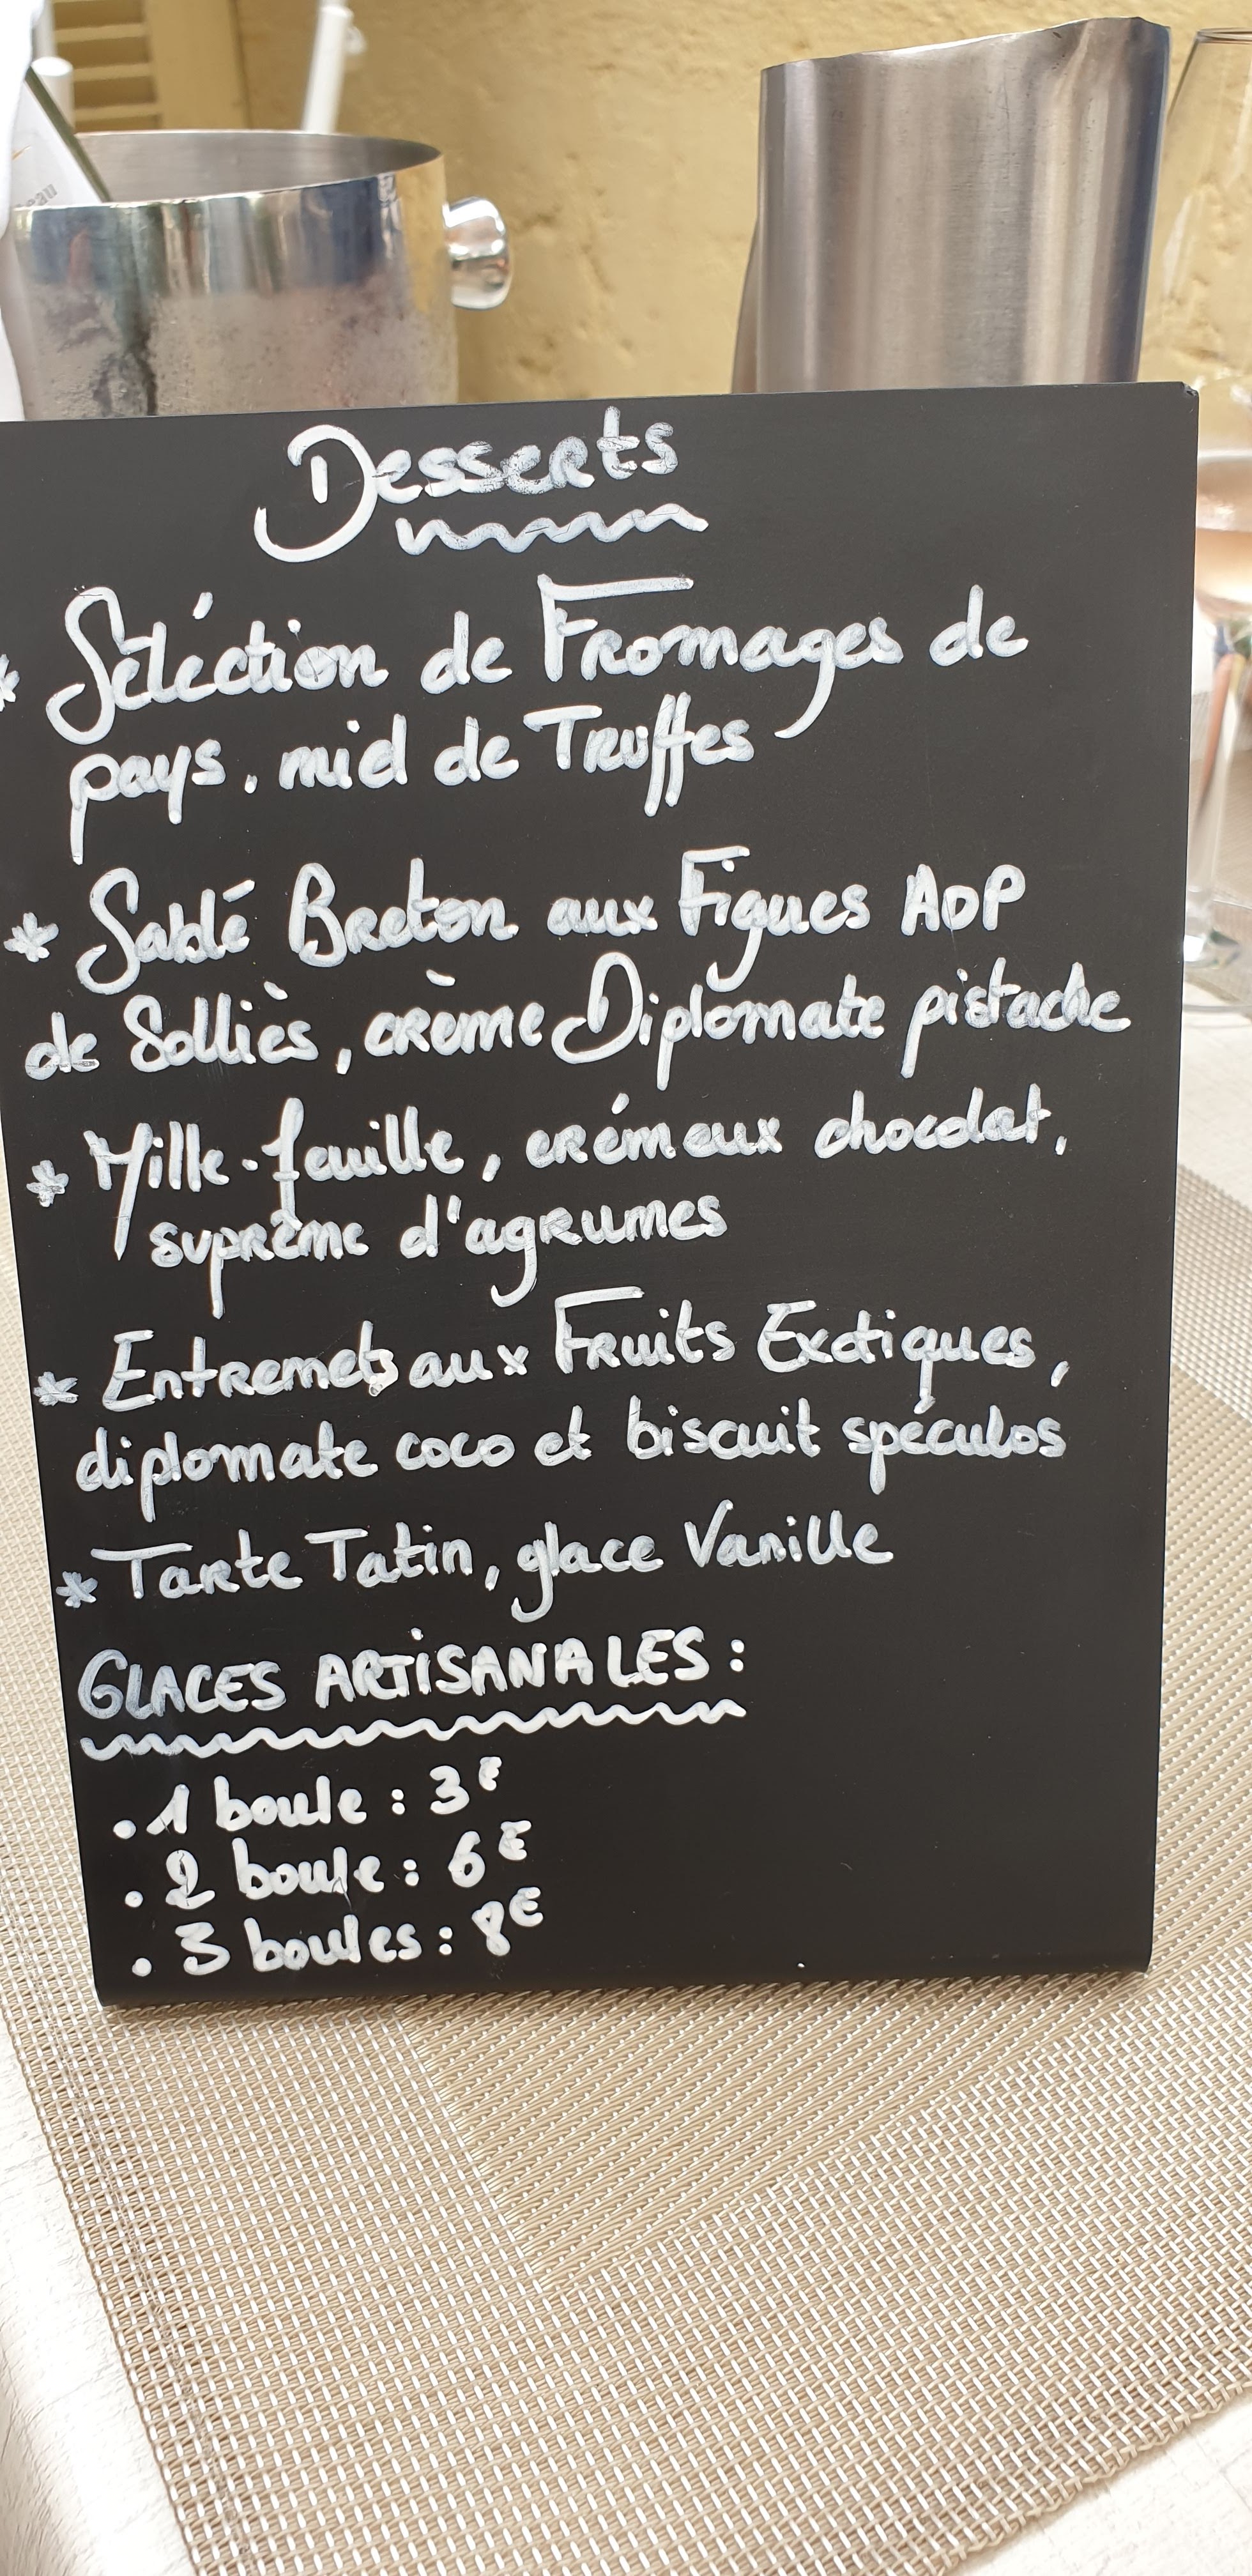 Desserts
* Séléction de Fromages de
pays. miel de Truffes
* Sablé Breton aux Figues AOP
de Solliès, crème Diplomate pistache
* Mille-feuille, crémeux chocolat,
suprême d'agrumes
* Entremets aux Fruits Exotiques,
diplomate coco et biscuit spéculos
* Tarte Tatin, glace Vanille
GLACES ARTISANALES :
. 1 boule : 3€
. 2 boule : 6€
. 3 boules : 8€